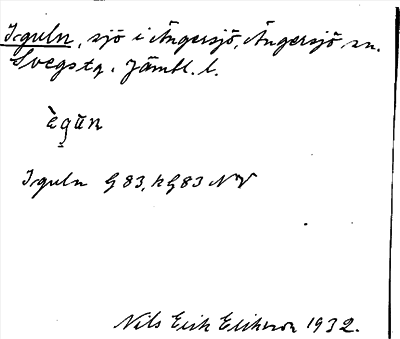 Iguln, sjö i Ängersjö, Ängersjö sn.
Svegs tg. Jämtl. l.
ègūn
Iguln G 83, k G 83 NV
Nils Erik Eliasson 1932.